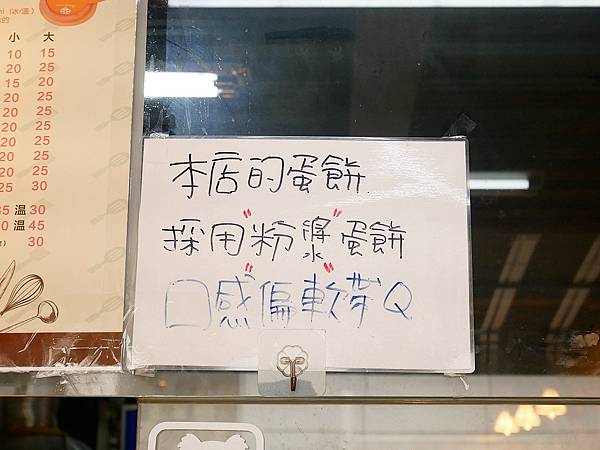 小 大
10 15
20 25
15 20
20 25
20 25
20 25
20 25
20 25
25 30
35 温 30
0 温 45
30
本店的蛋餅
採用"粉漿"蛋餅
口感"偏軟"帶Q